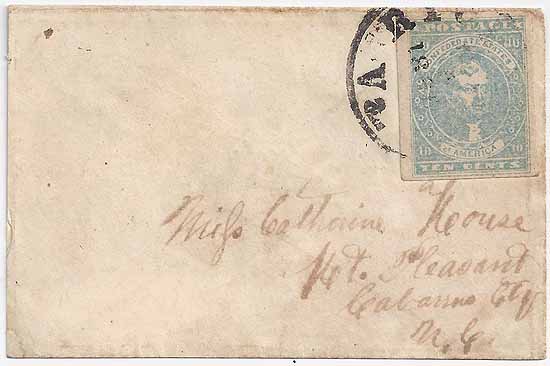 POSTAGE
CONFEDERATE STATES
OF AMERICA
10 10
TEN CENTS
Miss Catharine House
Mt. Pleasant
Cabarrus Cty
N. C.